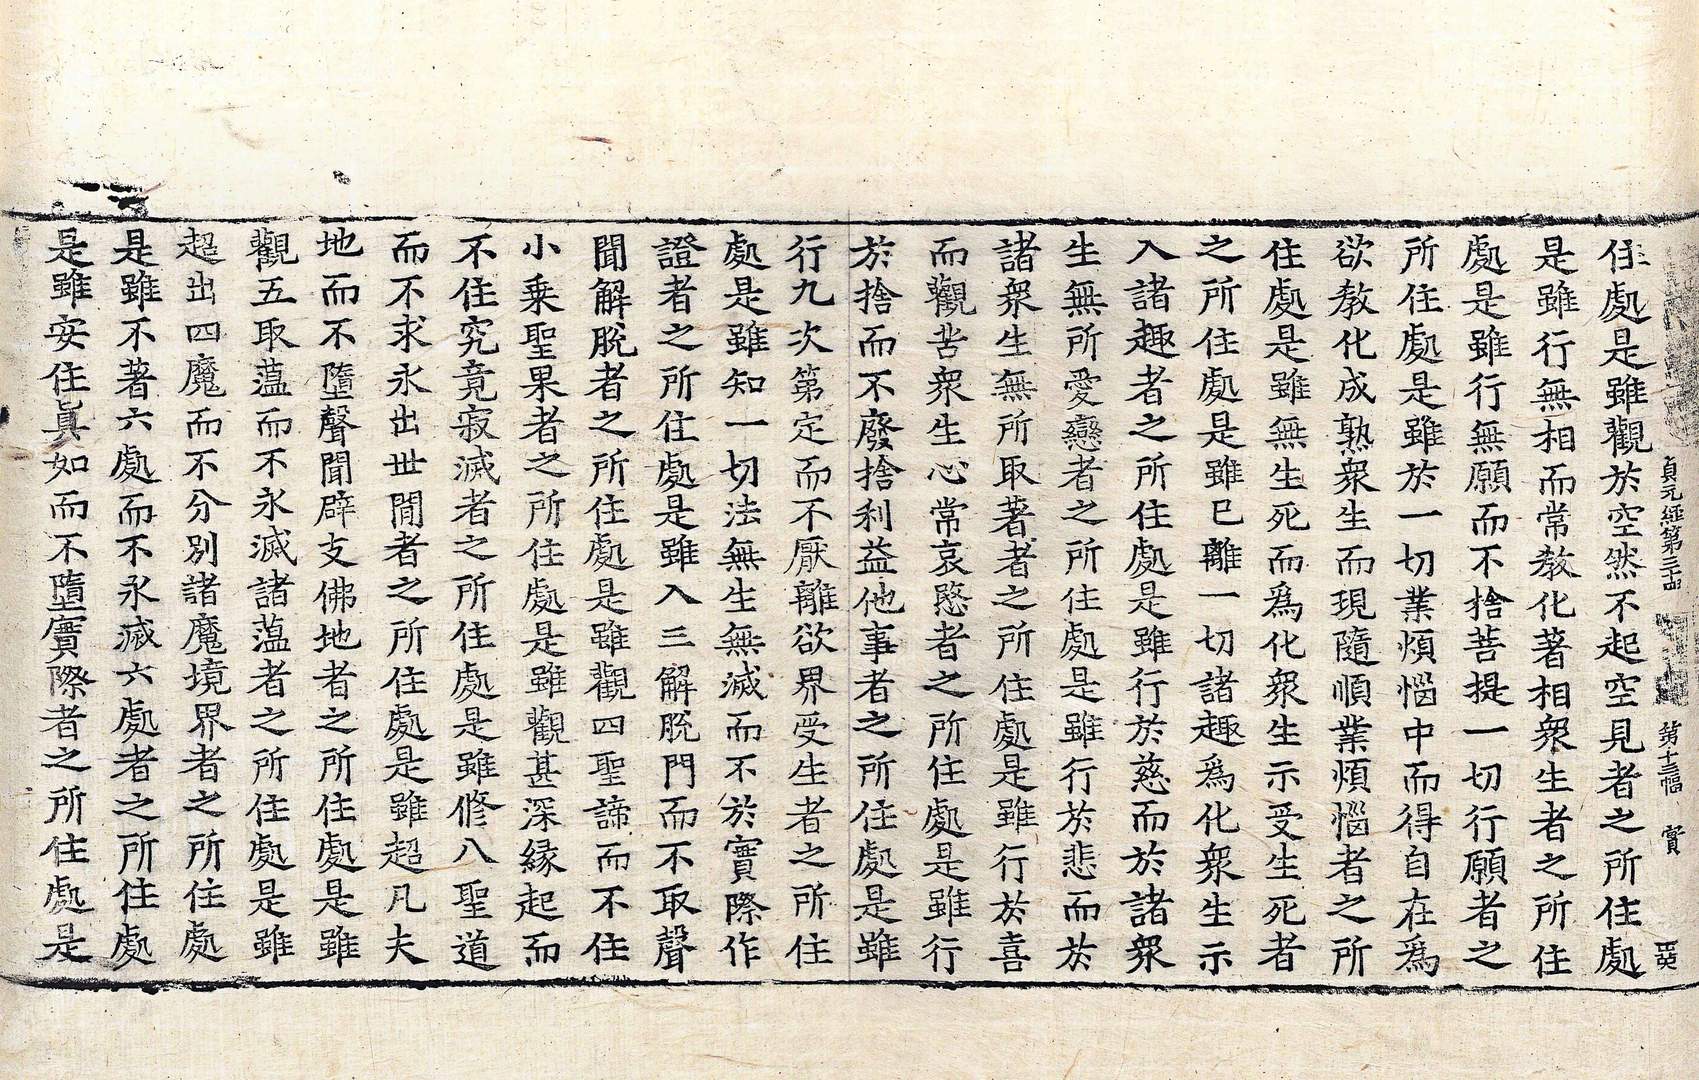 貞元經第三十四　第十三幅　實
住處是雖觀於空然不起空見者之所住處
是雖行無相而常教化著相衆生者之所住
處是雖行無願而不捨菩提一切行願者之
所住處是雖於一切業煩惱中而得自在爲
欲教化成熟衆生而現隨順業煩惱者之所
住處是雖無生死而爲化衆生示受生死者
之所住處是雖已離一切諸趣爲化衆生示
入諸趣者之所住處是雖行於慈而於諸衆
生無所愛戀者之所住處是雖行於悲而於
諸衆生無所取著者之所住處是雖行於喜
而觀苦衆生心常哀愍者之所住處是雖行
於捨而不廢捨利益他事者之所住處是雖
行九次第定而不厭離欲界受生者之所住
處是雖知一切法無生無滅而不於實際作
證者之所住處是雖入三解脫門而不取聲
聞解脫者之所住處是雖觀四聖諦而不住
小乗聖果者之所住處是雖觀甚深緣起而
不住究竟寂滅者之所住處是雖修八聖道
而不求永出世間者之所住處是雖超凡夫
地而不墮聲聞辟支佛地者之所住處是雖
觀五取薀而不永滅諸薀者之所住處是雖
超出四魔而不分別諸魔境界者之所住處
是雖不著六處而不永滅六處者之所住處
是雖安住眞如而不墮實際者之所住處是